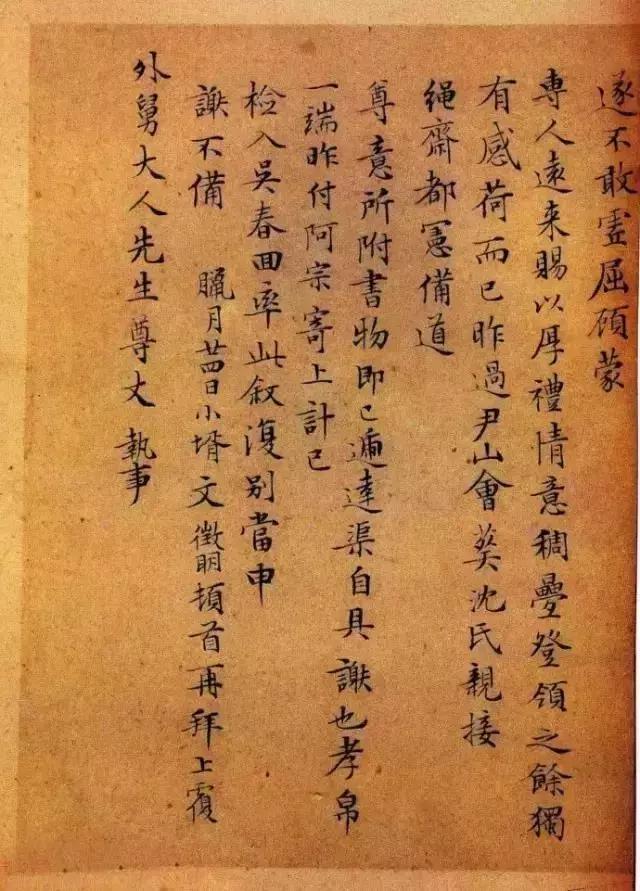 遂不敢虛屈頋蒙
專人遠来賜以厚禮情意稠疊登領之餘獨
有感荷而已昨過尹山會葬沈氏親接
繩齋都憲備道
尊意所附書物即已逓達渠自具謝也孝帛
一端昨付阿宗寄上計已
檢入吳春回率此敘復别當申
謝不備 臘月廿四日小壻文徵明頓首再拜上覆
外舅大人先生尊丈執事